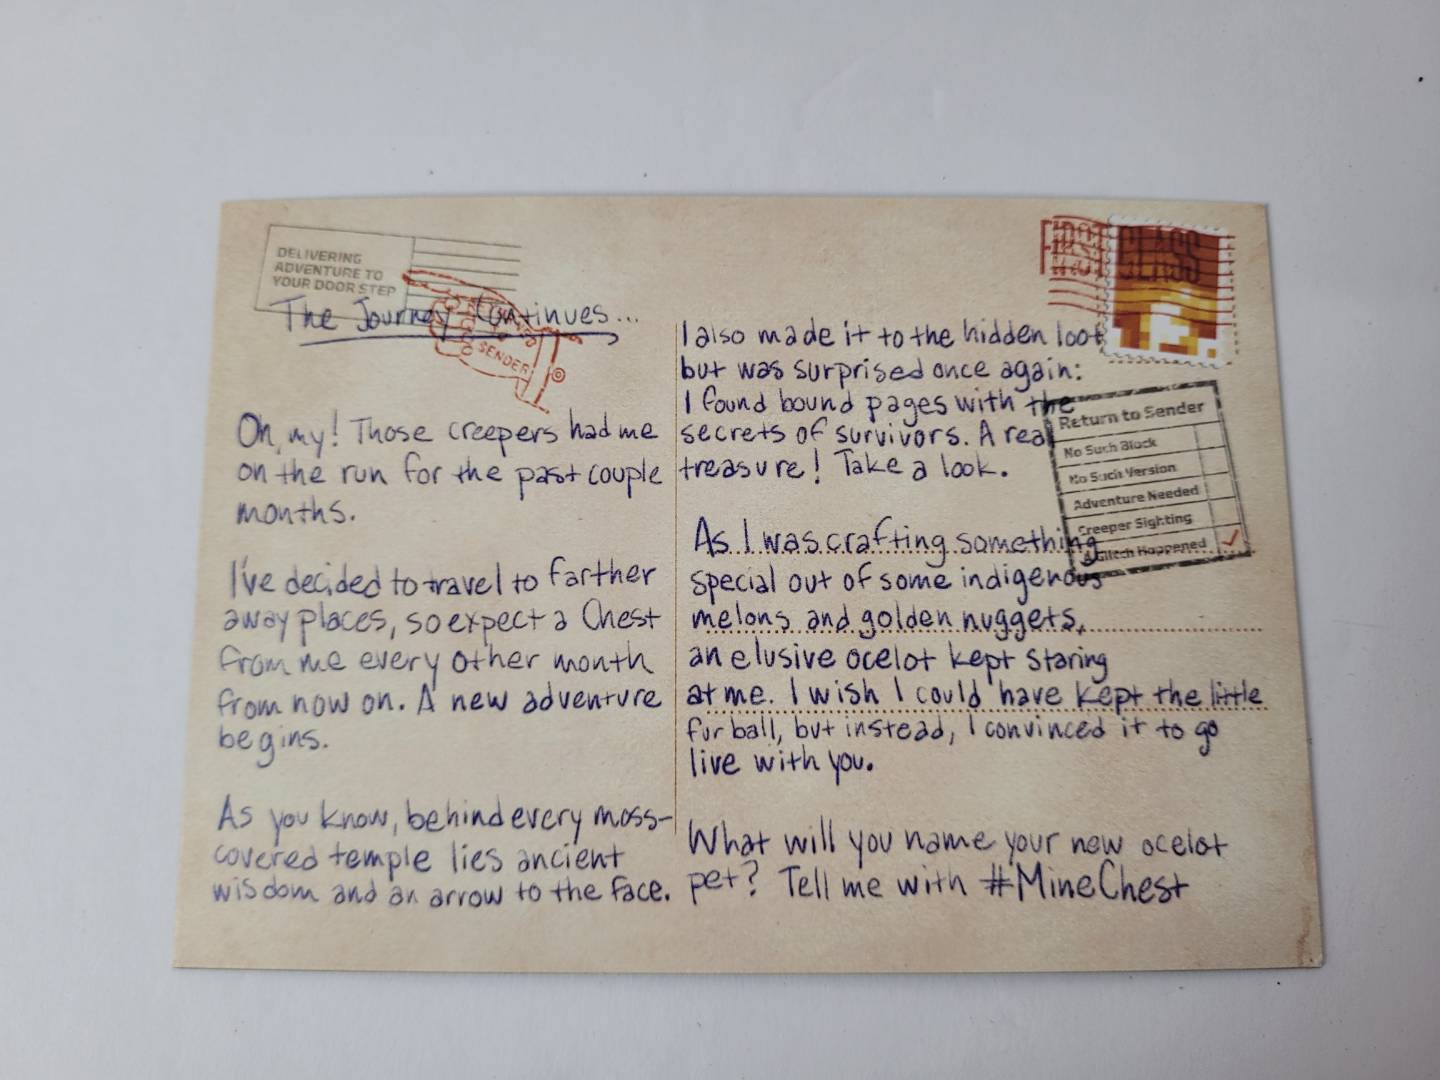 DELIVERING
ADVENTURE TO
YOUR DOOR STEP
The Journey Continues...
SENDER
Oh, my! Those creepers had me
on the run for the past couple
months.
I've decided to travel to farther
away places, so expect a Chest
from me every other month
from now on. A new adventure
begins.
As you know, behind every moss-
covered temple lies ancient
wisdom and an arrow to the face.
FIRST CLASS
I also made it to the hidden loot
but was surprised once again:
I found bound pages with the
secrets of survivors. A real
treasure! Take a look.
Return to Sender
No Such Block
No Such Version
Adventure Needed
Creeper Sighting
A Glitch Happened
As I was crafting something
special out of some indigenous
melons and golden nuggets,
an elusive ocelot kept staring
at me. I wish I could have kept the little
fur ball, but instead, I convinced it to go
live with you.
What will you name your new ocelot
pet? Tell me with #MineChest